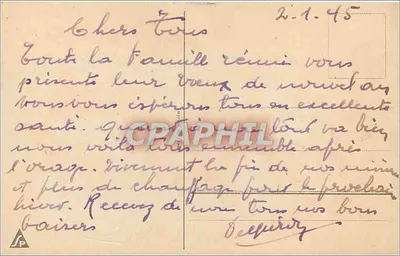 2.1.45
Chers Tous
Toute la Famille réunie vous
présente leur voeux de nouvel an
vous espérons tous en excellente
santé. tout va bien
nous voilà ensemble après
l'orage. Vivement la fin de nos
et plus de chauffage pour le prochain
hiver. Recevez de nous tous nos bons
baisers
CPAPHIL